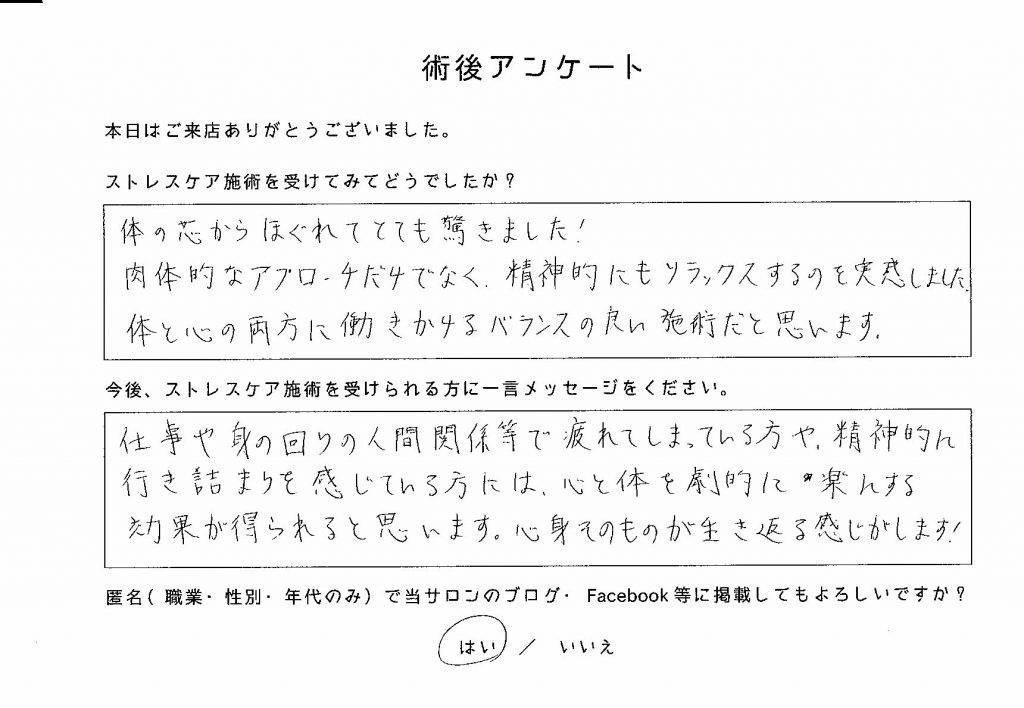 術後アンケート
本日はご来店ありがとうございました。
ストレスケア施術を受けてみてどうでしたか？
体の芯からほぐれてとても驚きました！
肉体的なアプローチだけでなく、精神的にもリラックスするのを実感しました。
体と心の両方に働きかけるバランスの良い施術だと思います。
今後、ストレスケア施術を受けられる方に一言メッセージをください。
仕事や身の回りの人間関係等で疲れてしまっている方や、精神的に
行き詰まりを感じている方には、心と体を劇的に楽にする
効果が得られると思います。心身そのものが生き返る感じがします！
匿名（職業・性別・年代のみ）で当サロンのブログ・Facebook等に掲載してもよろしいですか？
はい ／ いいえ